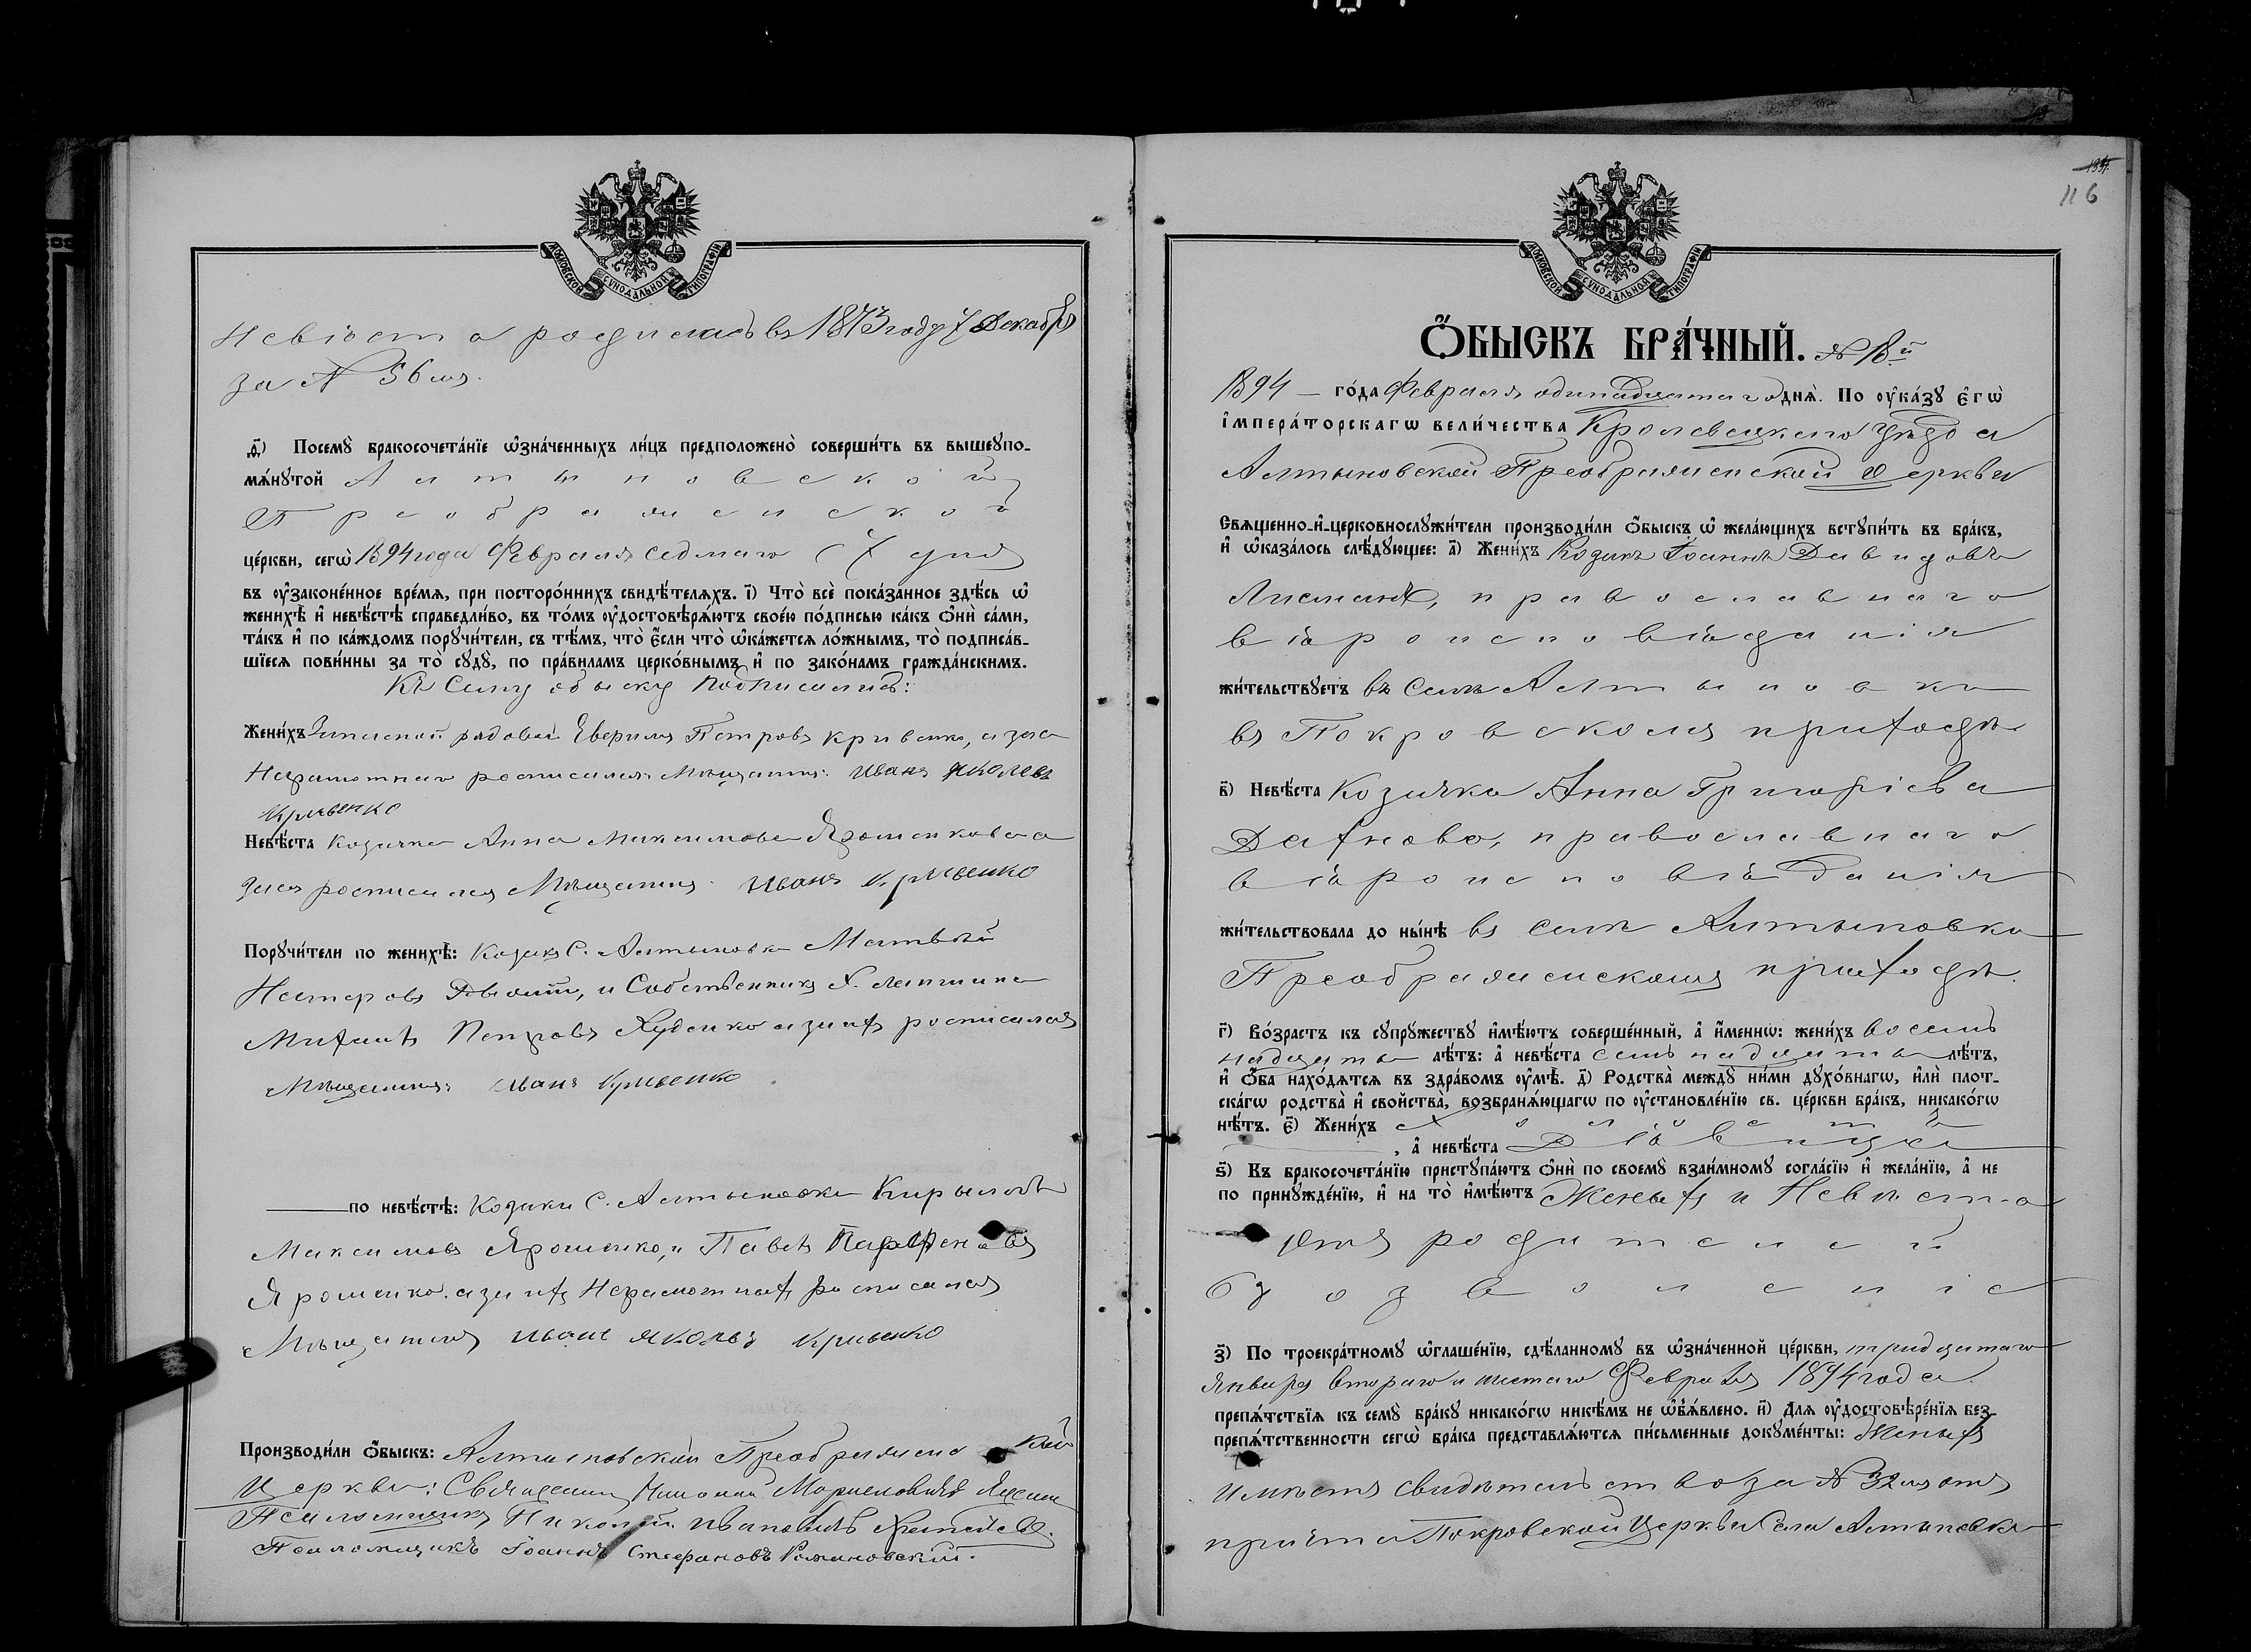 МОСКОВСКОЙ СѴНОДАЛЬНОЙ ТИПОГРАФІИ
Невѣста родилась въ 1873 году 7 Декабря
за № 56мъ.
д҃) Посемꙋ̀ бракосочета́нїе ѡ҆зна́ченныхъ ли́цъ предположено̀ соверши́ть въ вышеꙋпо-
мѧ́нꙋтой Алтыновской
Преображенской
це́ркви, сегѡ̀ 1894 года Февраля седмаго (7 дня
въ ᲂу҆законе́нное вре́мѧ, при посторо́ннихъ свидѣ́телѧхъ. і҃) Что̀ всѐ пока́занное здѣ́сь ѡ҆
женихѣ̀ и҆ невѣ́стѣ справедли́во, въ то́мъ ᲂу҆достовѣрѧ́ютъ свое́ю по́дписью ка́къ ѻ҆нѝ са́ми,
та́къ и҆ по ка́ждомъ порꙋчи́тели, съ тѣ́мъ, что̀ є҆́сли что̀ ѡ҆ка́жетсѧ ло́жнымъ, то̀ подписа́в-
шїесѧ пови́нны за то̀ сꙋдꙋ̀, по пра́виламъ церко́внымъ и҆ по зако́намъ гражда́нскимъ.
Къ Сему обыску подписались:
Жени́хъ Запасной рядовой Евфимъ Петровъ Кривенко, а за его
Неграмотнаго росписался Мѣщанинъ: Иванъ Яколевъ
Кривенко
Невѣ́ста Козачка Анна Максимова Ярошенкова а
за нея росписался Мѣщанинъ. Иванъ Кривенко
Порꙋчи́тели по женихѣ̀: Козакъ С. Алтыновки Матвѣй
Нестеровъ и Собственникъ Х.
Михаилъ Петровъ Худенко а за ихъ росписался
Мѣщанинъ: Иванъ Кривенко
по невѣ́стѣ: Козаки С. Алтыновки Кирылъ
Максимовъ Ярошенко, и Павелъ Парфеновъ
Ярошенко. а за ихъ Неграмотныхъ росписался
Мѣщанинъ Иванъ Яколвъ Кривенко
Производи́ли ѻ҆́быскъ: Алтыновской Преображенской
Церкви: Священникъ
Псаломщикъ Николай Ивановичъ
Псаломщикъ Іоаннъ Стефановъ Романовский.
116
МОСКОВСКОЙ СѴНОДАЛЬНОЙ ТИПОГРАФІИ
Ѻ҆́БЫСКЪ БРА́ЧНЫЙ. № 18й
1894 — го́да Февраля одинадцатаго днѧ̀. По ᲂу҆ка́зꙋ є҆гѡ̀
і҆мпера́торскагѡ вели́чества Кролевецкаго уѣзда
Алтыновской Преображенской Церкви
Сващенно-и҆-церковнослꙋжи́тели производи́ли ѻ҆́быскъ ѡ҆ жела́ющихъ встꙋпи́ть въ бра́къ,
и҆ ѡ҆каза́лось слѣ́дꙋющее: а҃) Жени́хъ Козакъ Іоаннъ Давидовъ
православнаго
вѣроисповѣданія
жи́тельствꙋетъ въ селѣ Алтыновкѣ
въ Покровскомъ приходѣ
в҃) Невѣ́ста Козачка Анна Григоріева
Дахнова, православнаго
вѣроисповѣданія
жи́тельствовала до ны́нѣ въ селѣ Алтыновкѣ
Преображенскомъ приходѣ.
г҃) Во́зрастъ къ сꙋпрꙋ́жествꙋ и҆мѣ́ютъ соверше́нный, а҆ и҆́меннѡ: жени́хъ восем
надцать лѣ́тъ: а҆ невѣ́ста семьнадцать лѣ́тъ,
и҆ ѻ҆́ба нахо́дѧтсѧ въ здра́вомъ ᲂу҆мѣ̀. д҃) Родства̀ междꙋ̀ ни́ми дꙋхо́внагѡ, и҆лѝ плот-
ска́гѡ родства̀ и҆ свойства̀, возбранѧ́ющагѡ по ᲂу҆становле́нїю св. це́ркви бра́къ, никако́гѡ
нѣ́тъ. є҃) Жени́хъ холостъ
, а҆ невѣ́ста Дѣвица
ѕ҃) Къ бракосочета́нїю пристꙋпа́ютъ ѻ҆нѝ по своемꙋ̀ взаи́мномꙋ согла́сїю и҆ жела́нїю, а҆ не
по принꙋжде́нїю, и҆ на то̀ и҆мѣ́ютъ Женихъ и Невѣста
отъ родителей
дозволеніе
з҃) По троекра́тномꙋ ѡ҆глаше́нїю, сдѣ́ланномꙋ въ ѡ҆зна́ченной це́ркви, тридцатаго
Января втораго и шестаго Февраля 1894 года.
препѧ́тствїѧ къ семꙋ̀ бра́кꙋ никако́гѡ никѣ́мъ не ѡ҆бъѧ́влено. и҃) Длѧ ᲂу҆достовѣре́нїѧ без
препѧ́тственности сегѡ̀ бра́ка представлѧ́ютсѧ пи́сьменные докꙋме́нты: Женихъ
имѣетъ свидѣтельство за № 32мъ отъ
причта Покровской Церкви Села Алтыновки